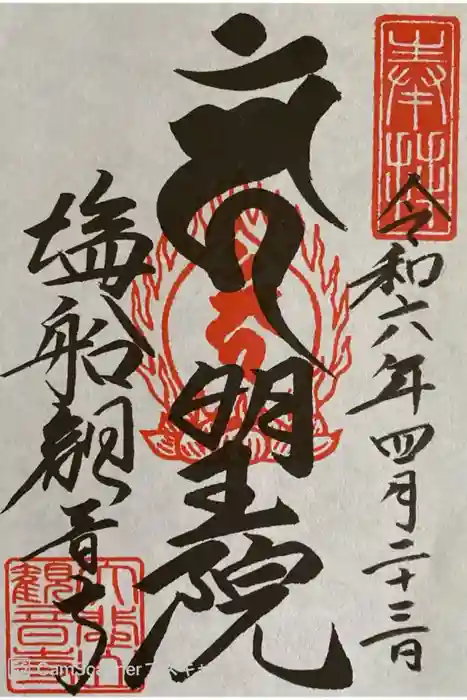 奉拝
令和六年四月二十三日
明王院
塩船観音寺
大悲山
觀音寺
CamScanner